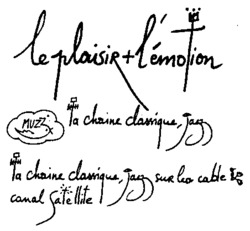 le plaisir + l'émotion
MUZZ
la chaine classique, jazz
la chaine classique, jazz sur les cable
canal satellite